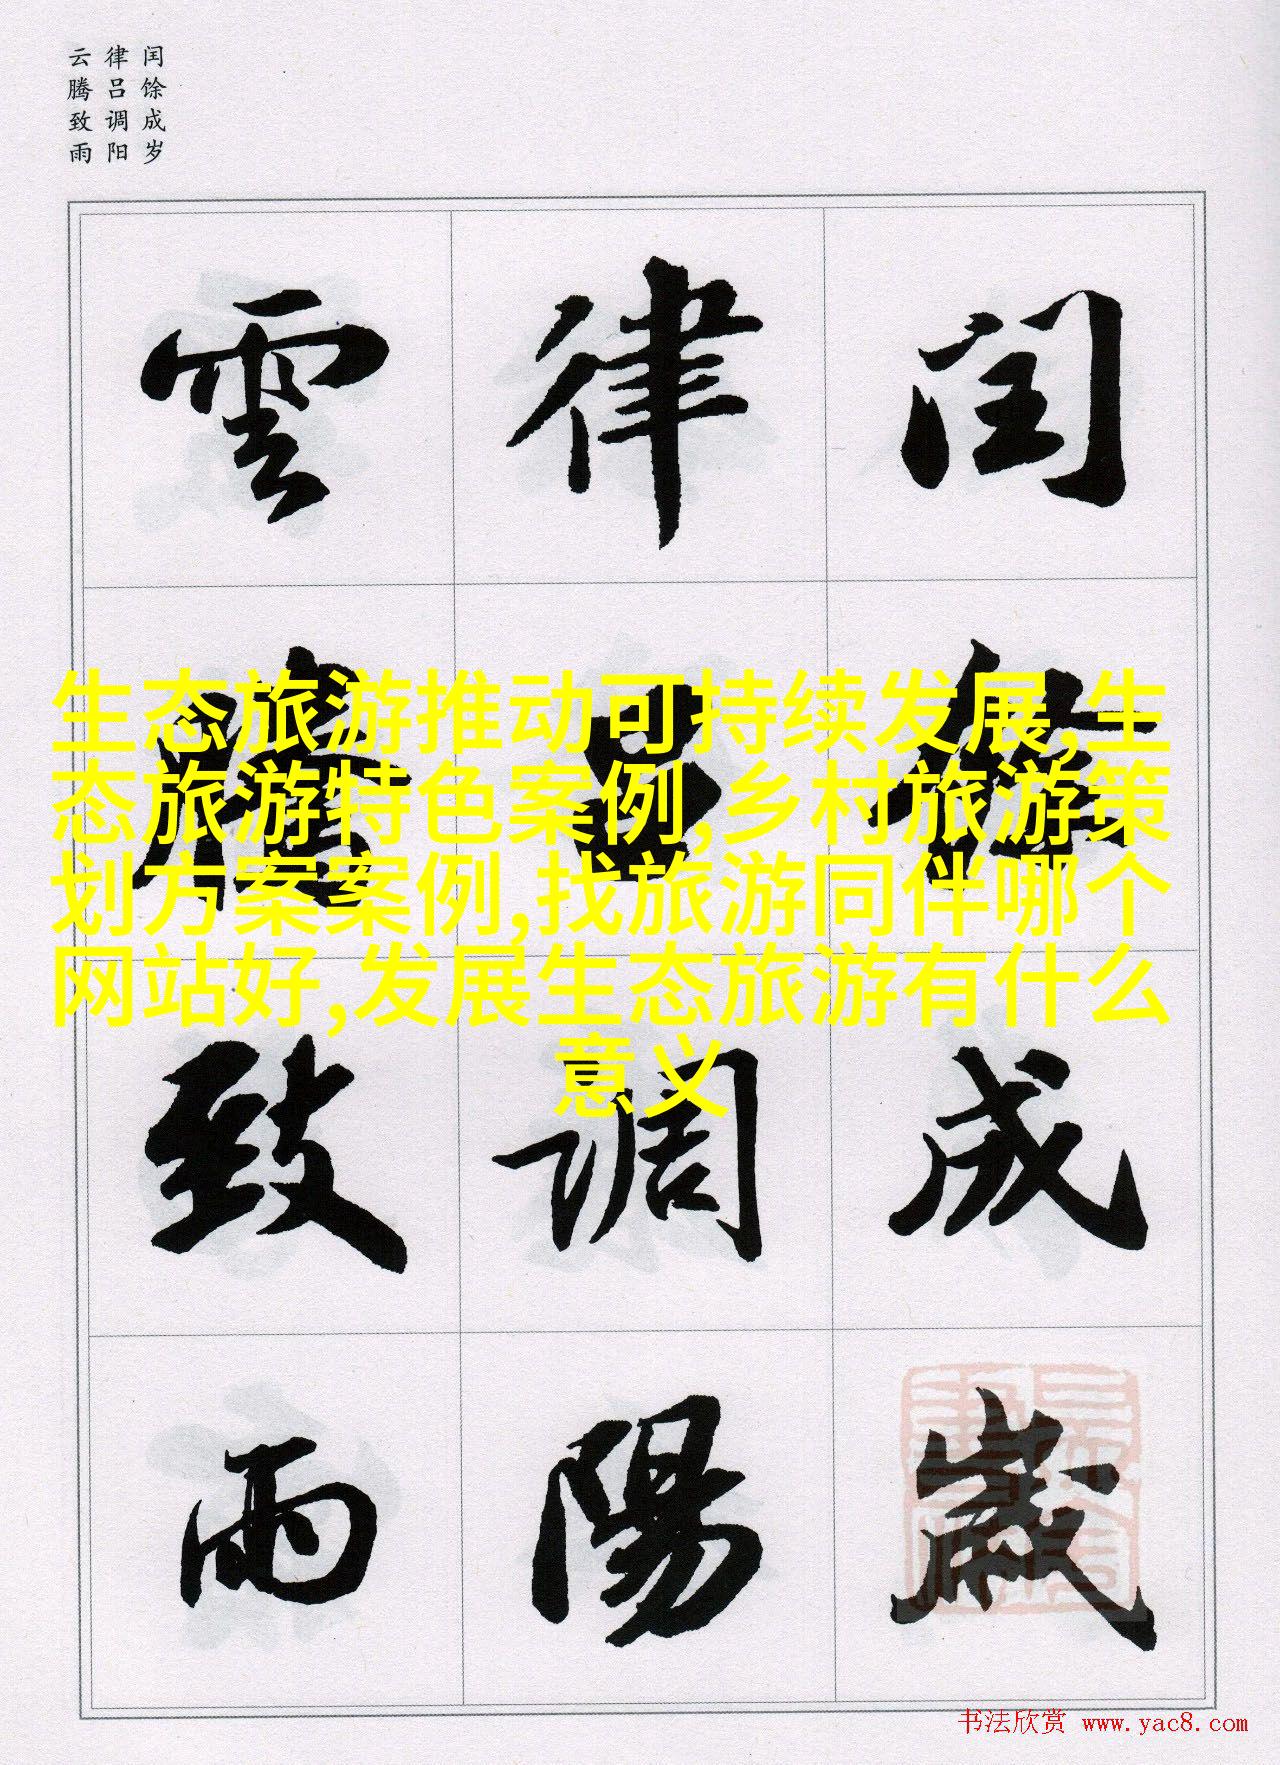 闰馀成岁
律吕调阳
云腾致雨
閏餘成歲
律呂調陽
雲騰致雨
生态旅游推动可持续发展,生
态旅游特色案例,乡村旅游策
划方案案例,找旅游同伴哪个
网站好,发展生态旅游有什么
意义
书法欣赏 www.yac8.com